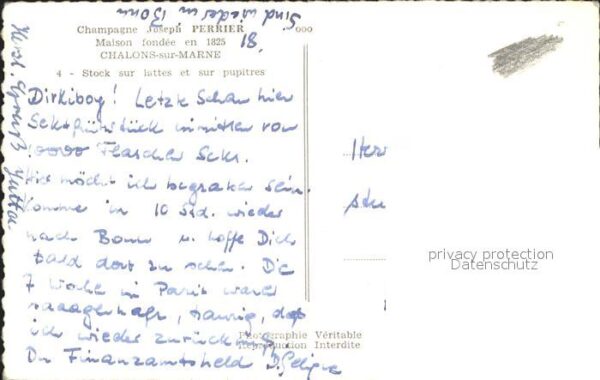 Sind wieder in Bonn
Champagne Joseph PERRIER
Maison fondée en 1825
CHALONS-sur-MARNE
4 - Stock sur lattes et sur pupitres
Dirkiboy! Letzte Schau hier
Sektfrühstück inmitten von
Flaschen Sekt.
Hier möcht ich begraben sein.
Komme in 10 Std. wieder
nach Bonn u. hoffe Dich
bald dort zu sehen. Die
7 Woche in Paris waren
saaagenhaft, traurig, daß
ich wieder zurück
Du Finanzamtsheld
Herzl. Gruß Jutta
Herr
Photographie Véritable
Reproduction Interdite
privacy protection
Datenschutz